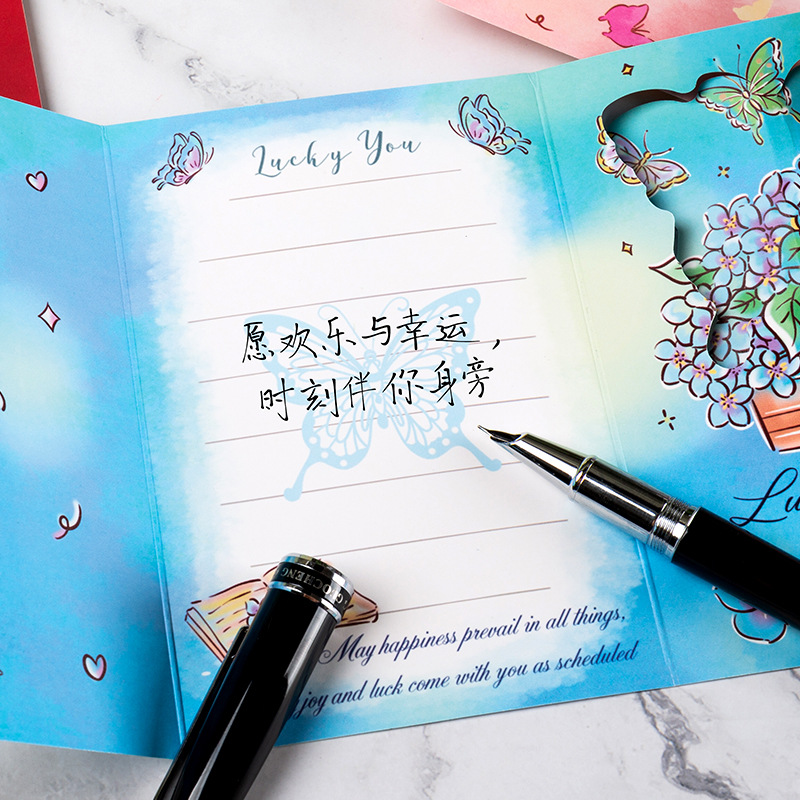 Lucky You
愿欢乐与幸运，
时刻伴你身旁
May happiness prevail in all things,
joy and luck come with you as scheduled